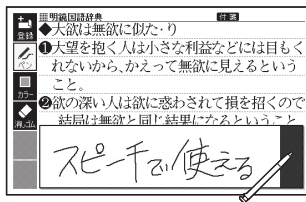 明鏡国語辞典 付箋
登録
ペン
カラー
消しゴム
◆大欲は無欲に似た・り
❶大望を抱く人は小さな利益などには目もく
れないから、かえって無欲に見えるという
こと。
❷欲の深い人は欲に惑わされて損を招くので
結局は無欲と同じ結果になるということ
スピーチで使える